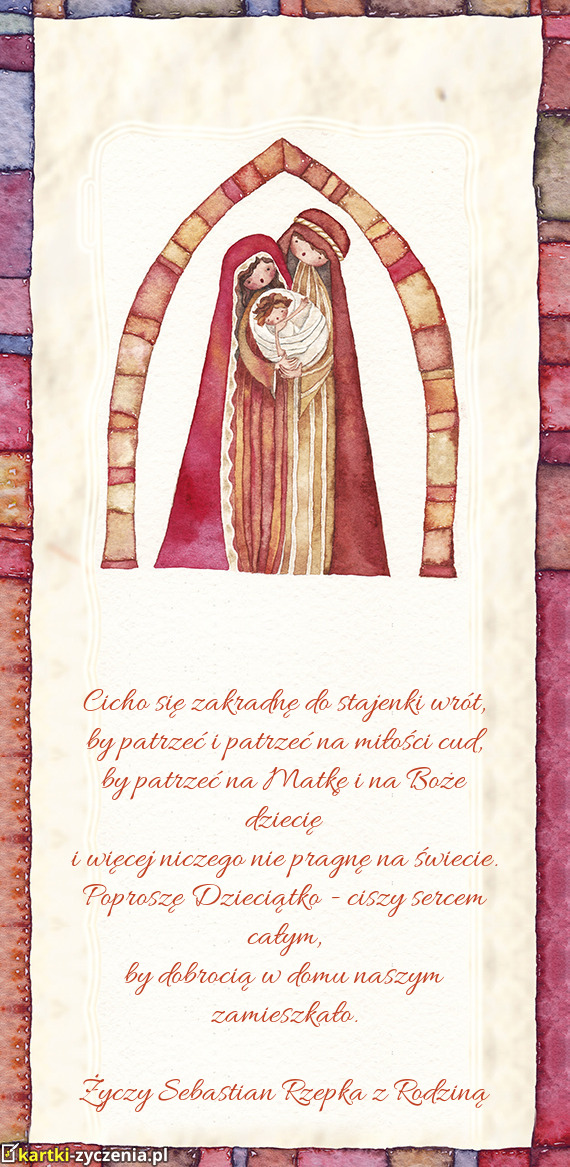 Cicho się zakradnę do stajenki wrót,
by patrzeć i patrzeć na miłości cud,
by patrzeć na Matkę i na Boże
dziecię
i więcej niczego nie pragnę na świecie.
Poproszę Dzieciątko - ciszy sercem
całym,
by dobrocią w domu naszym
zamieszkało.
Życzy Sebastian Rzepka z Rodziną
kartki-zyczenia.pl